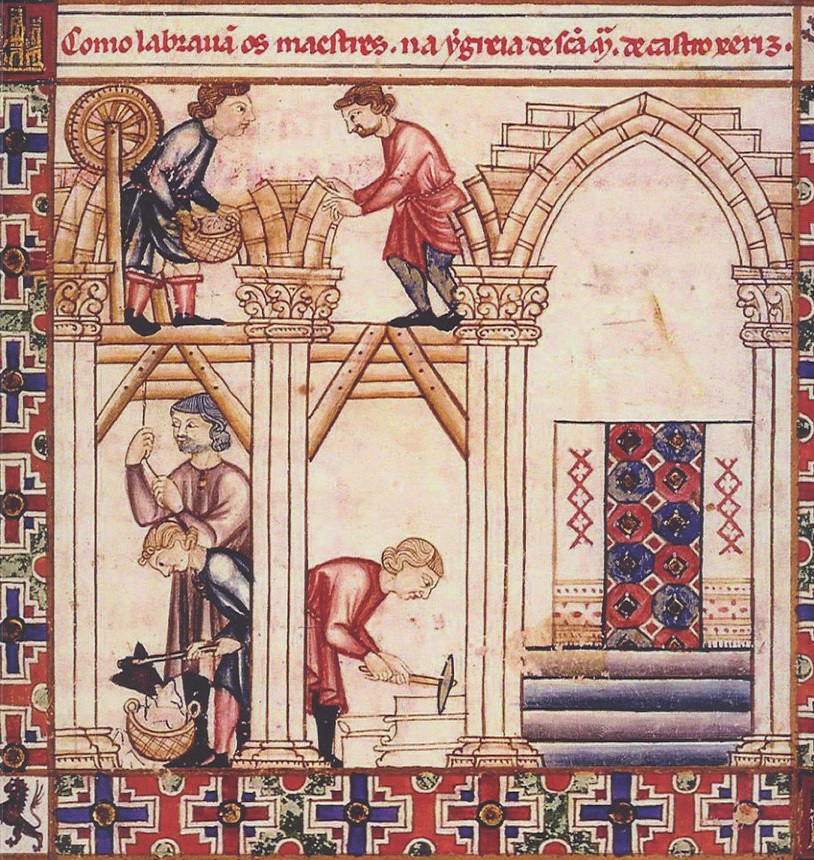 Como labrauã os maestres. na ygreia de scã mͣ. de castro xeriz.